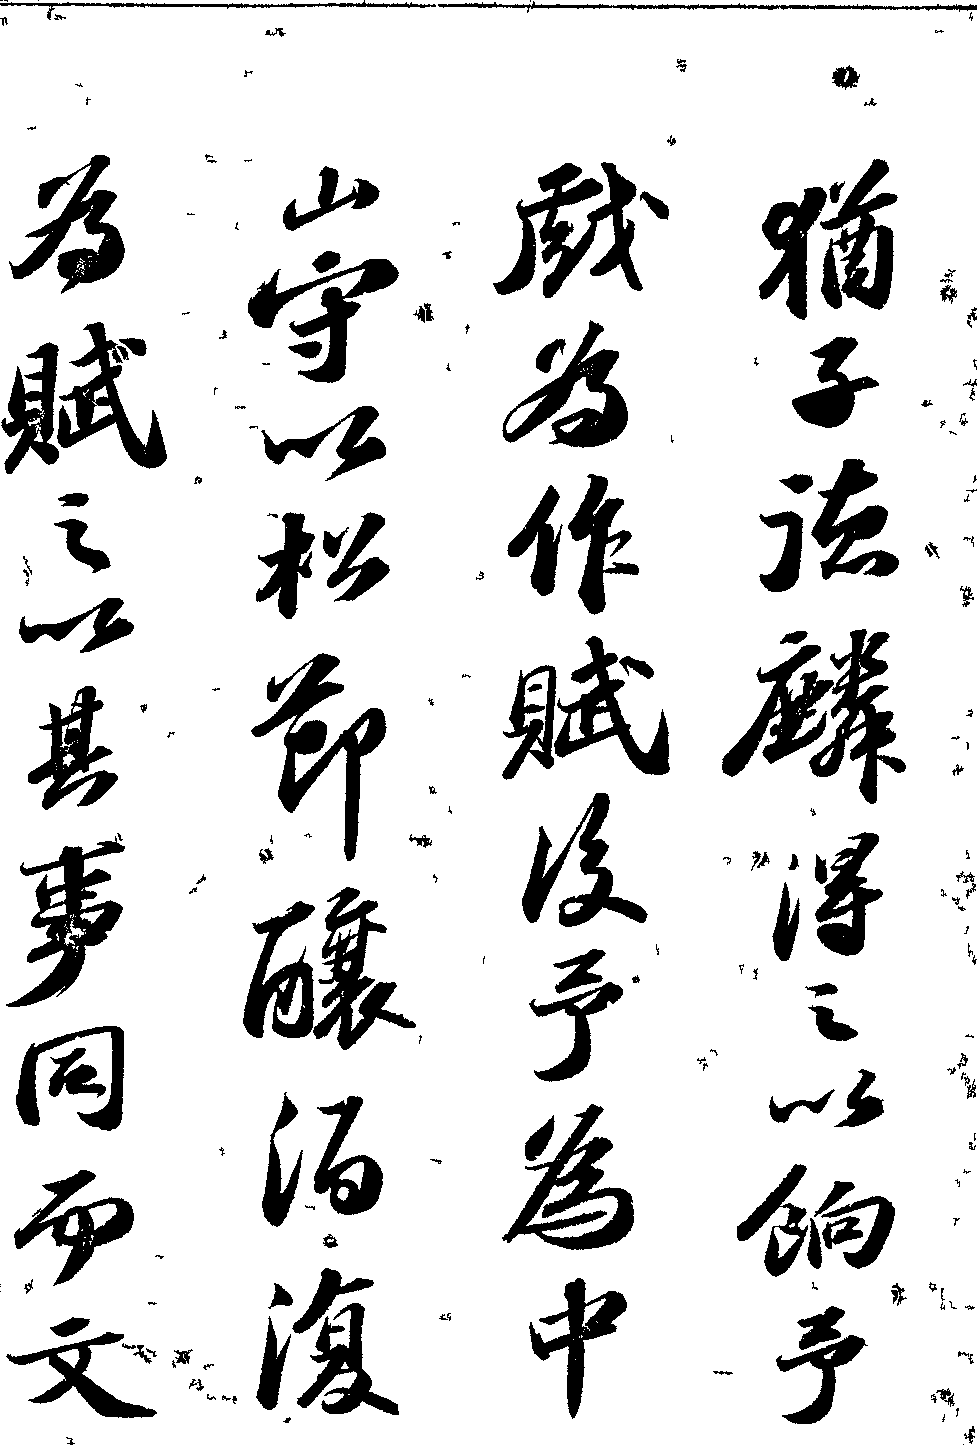 猶子德麟得之以餉予
戲為作賦後予為中
山守以松節釀酒復
為賦之以其事同而文